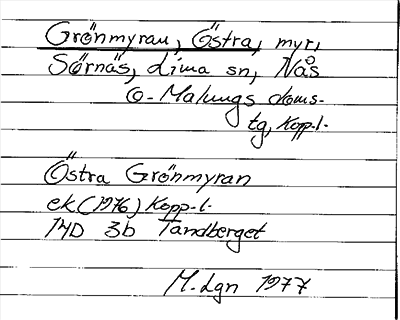 Grönmyran, Östra, myr,
Sörnäs, Lima sn, Nås
o. Malungs doms-
tg, Kopp.l.
Östra Grönmyran
ek (1976) Kopp.l.
14D 3b Tandberget
M.Lgn 1977